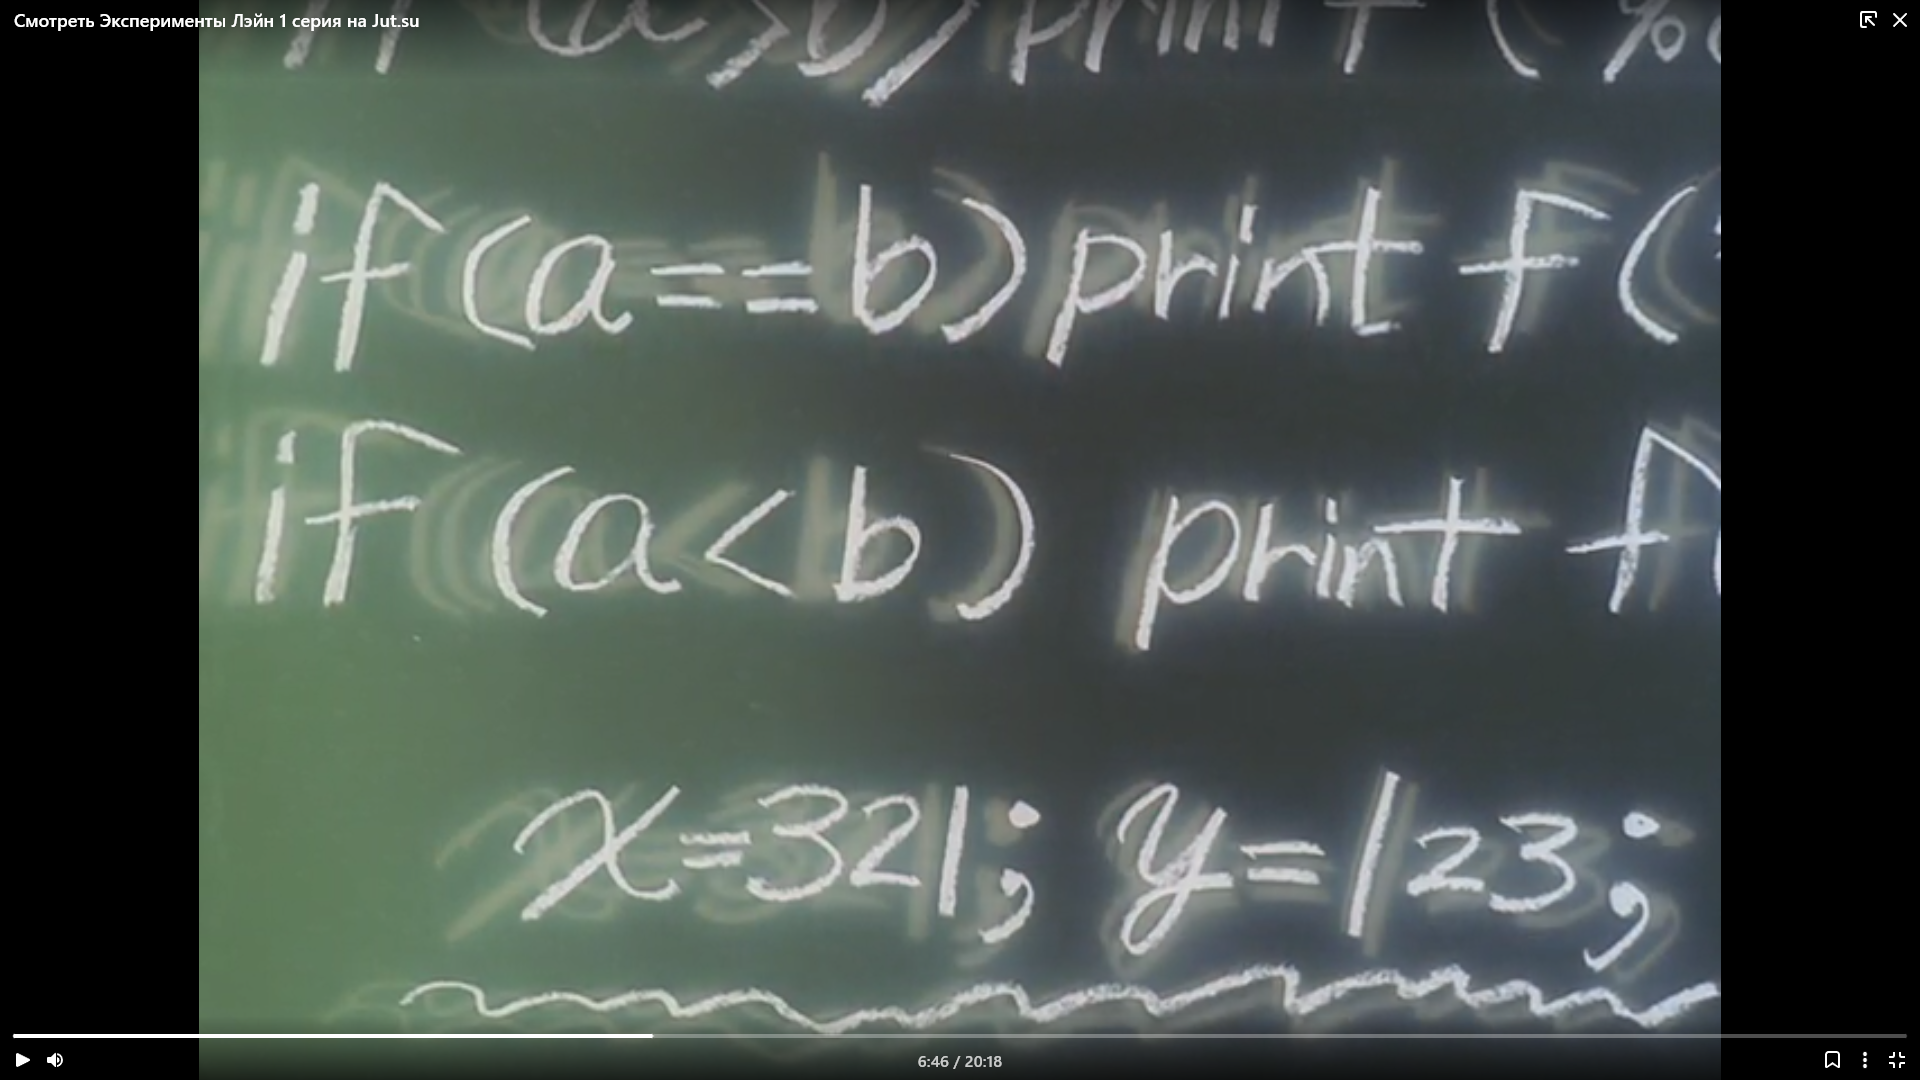 Смотреть Эксперименты Лэйн 1 серия на Jut.su
if (a>b) printf ( %
if (a==b) print f (
if (a<b) print f
x=321; y=123;
6:46 / 20:18